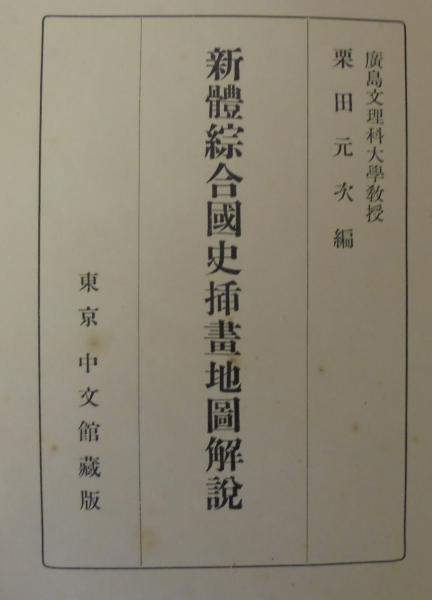 廣島文理科大學敎授
栗田元次編
新體綜合國史揷畫地圖解說
東京 中文館藏版